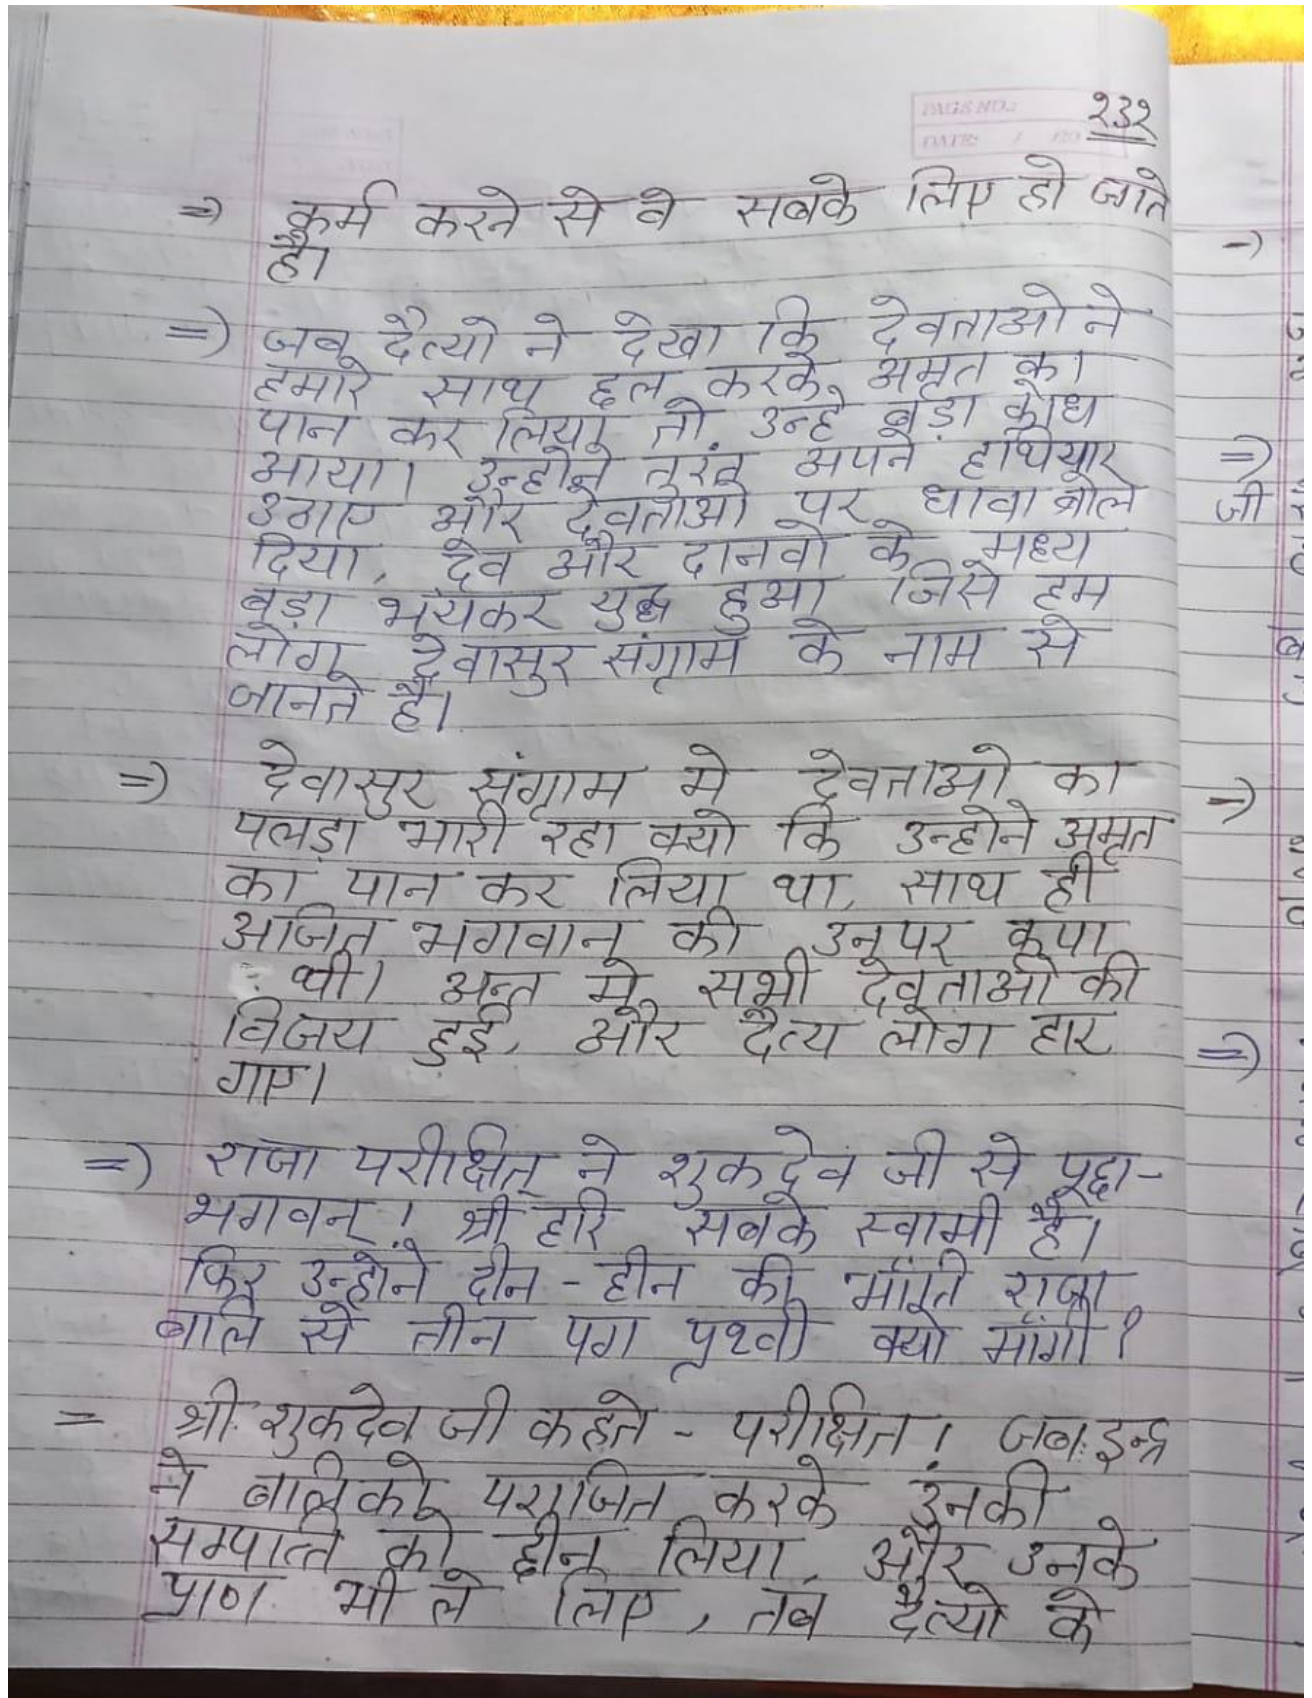 PAGE NO.:
DATE: / /20
२३२
=> कर्म करने से वे सबके लिए हो जाते
है।
=> जब दैत्यो ने देखा कि देवताओ ने
हमारे साथ छल करके, अमृत का
पान कर लिया तो उन्हे बड़ा क्रोध
आया। उन्होने तुरंत अपने हथियार
उठाए और देवताओ पर धावा बोल
दिया, देव और दानवो के मध्य
बड़ा भयंकर युद्ध हुआ जिसे हम
लोग देवासुर संग्राम के नाम से
जानते है।
=> देवासुर संग्राम मे देवताओ का
पलड़ा भारी रहा क्यो कि उन्होने अमृत
का पान कर लिया था, साथ ही
अजित भगवान की उनपर कृपा
थी। अन्त मे सभी देवताओ की
विजय हुई, और दैत्य लोग हार
गए।
=> राजा परीक्षित् ने शुकदेव जी से पूछा-
भगवन्! श्री हरि सबके स्वामी है।
फिर उन्होने दीन-हीन की भाँति राजा
बलि से तीन पग पृथ्वी क्यो माँगी?
= श्री शुकदेव जी कहते - परीक्षित! जब इन्द्र
ने बलि को पराजित करके उनकी
सम्पत्ति को छीन लिया, और उनके
प्राण भी ले लिए, तब दैत्यो के
=>
जी